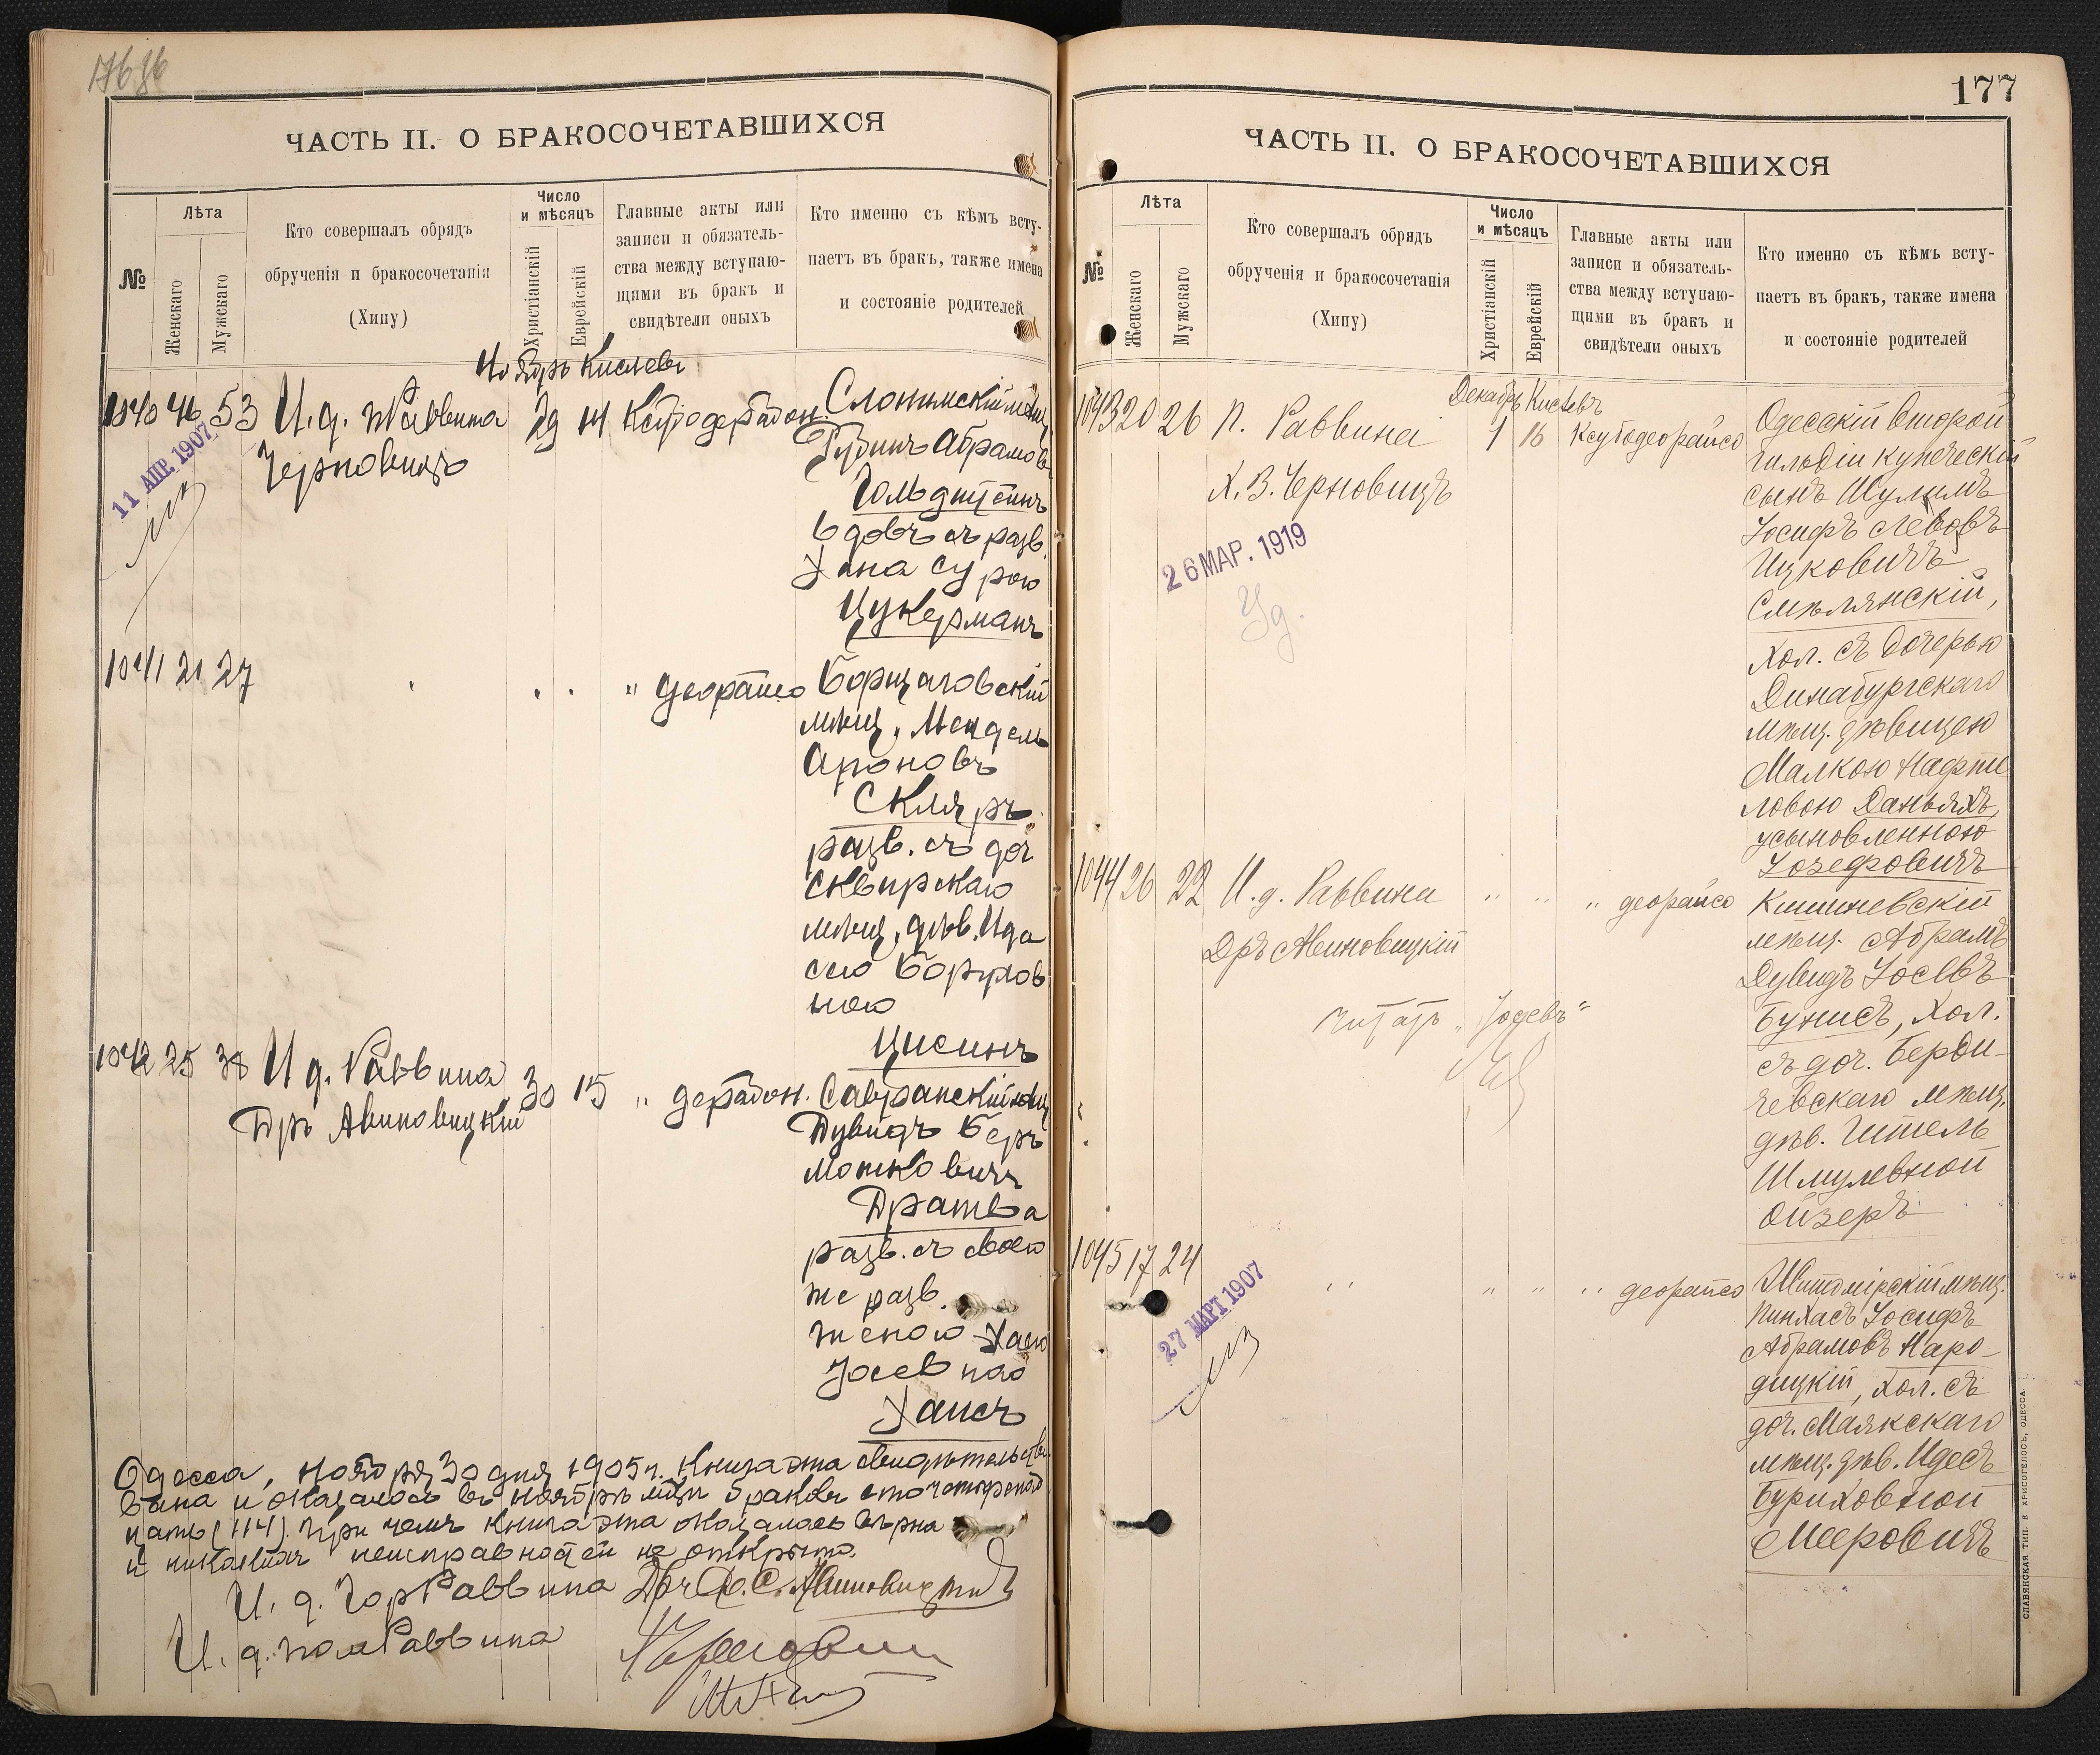 ЧАСТЬ II. О БРАКОСОЧЕТАВШИХСЯ
№
Лѣта
Женскаго
Мужскаго
Кто совершалъ обрядъ
обрученія и бракосочетанія
(Хипу)
Число
и мѣсяцъ
Христіанскій
Еврейскій
Главные акты или
записи и обязатель-
ства между вступаю-
щими въ бракъ и
свидѣтели оныхъ
Кто именно съ кѣмъ всту-
паетъ въ бракъ, также имена
и состояніе родителей
Ноябрь Кислевъ
1040 46 53 И. д. Раввина 29 14
Черновицъ
11 АПР. 1907
Слонимскій мѣщ.
Рубинъ Абрамовъ
Гольдштейнъ
вдовъ съ разв.
Хана Сурою
Цукерманъ
1041 21 27 " деорайсо
Борщаговскій
мѣщ. Мендель
Ароновъ
Скляръ
разв. съ доч
Сквирскаго
мѣщ. дѣв. Ида
сею Борухов
ною
Цисинъ
1042 25 38 И д. Раввина 30 15 "
Дръ Авиновицкій
Савранскій мѣщ
Дувидъ Беръ
Мошковичъ
Дратва
разв. съ своею
же разв.
женою Хаею
Іосевною
Хаисъ
Одесса, ноября 30 дня 1905 г. Книга эта свидѣтельство
вана и оказалось въ ноябрѣ мѣс. браковъ сто четырнад
цать (114). При чемъ книга эта оказалась вѣрна
и никакихъ неисправностей не открыто.
И. д. Гор Раввина Дръ Авиновицкій
И. д. пом Раввина
177
ЧАСТЬ II. О БРАКОСОЧЕТАВШИХСЯ
№
Лѣта
Женскаго
Мужскаго
Кто совершалъ обрядъ
обрученія и бракосочетанія
(Хипу)
Число
и мѣсяцъ
Христіанскій
Еврейскій
Главные акты или
записи и обязатель-
ства между вступаю-
щими въ бракъ и
свидѣтели оныхъ
Кто именно съ кѣмъ всту-
паетъ въ бракъ, также имена
и состояніе родителей
Декабрь Кислевъ
1043 20 26 П. Раввина 1 16 Ксубодеорайсо
Х. В. Черновицъ
26 МАР. 1919
Одесскій второй
гильдіи купеческій
сынъ Шулимъ
Іосифъ Лейбовъ
Ицковичъ
Смѣлянскій,
хол. съ дочерью
Динабургскаго
мѣщ. дѣвицею
Малкою Нафте
ловою Даньяхъ,
усыновленною
Іозефовичъ
1044 26 22 И. д. Раввина " " " деорайсо
Дръ Авиновицкій
Читать „Іосевъ"
Кишиневскій
мѣщ. Абрамъ
Дувидъ Іосевъ
Бунисъ, хол.
съ доч. Берди-
чевскаго мѣщ.
дѣв. Гитель
Шмулевной
Ойзеръ
1045 17 24 " " " " деорайсо
27 МАРТ 1907
Житомірскій мѣщ.
Пинхасъ Іосифъ
Абрамовъ Наро-
дицкій, хол. съ
доч. Маякскаго
мѣщ. дѣв. Идесъ
Бурихòвной
Мееровичъ
СЛАВЯНСКАЯ ТИП. Е ХРИСОГЕЛОСЪ, ОДЕССА